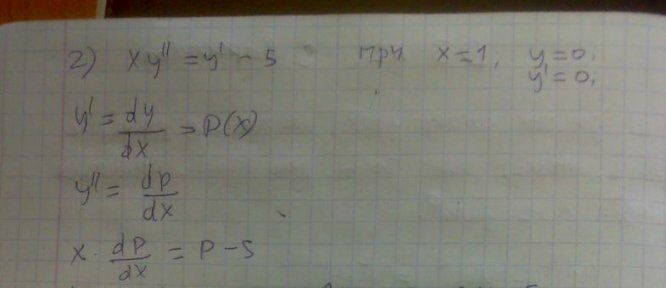 2) xy'' = y' - 5 при x=1, y=0,
y'=0,
y' = dy/dx = P(x)
y'' = dp/dx
x · dP/dx = P - 5